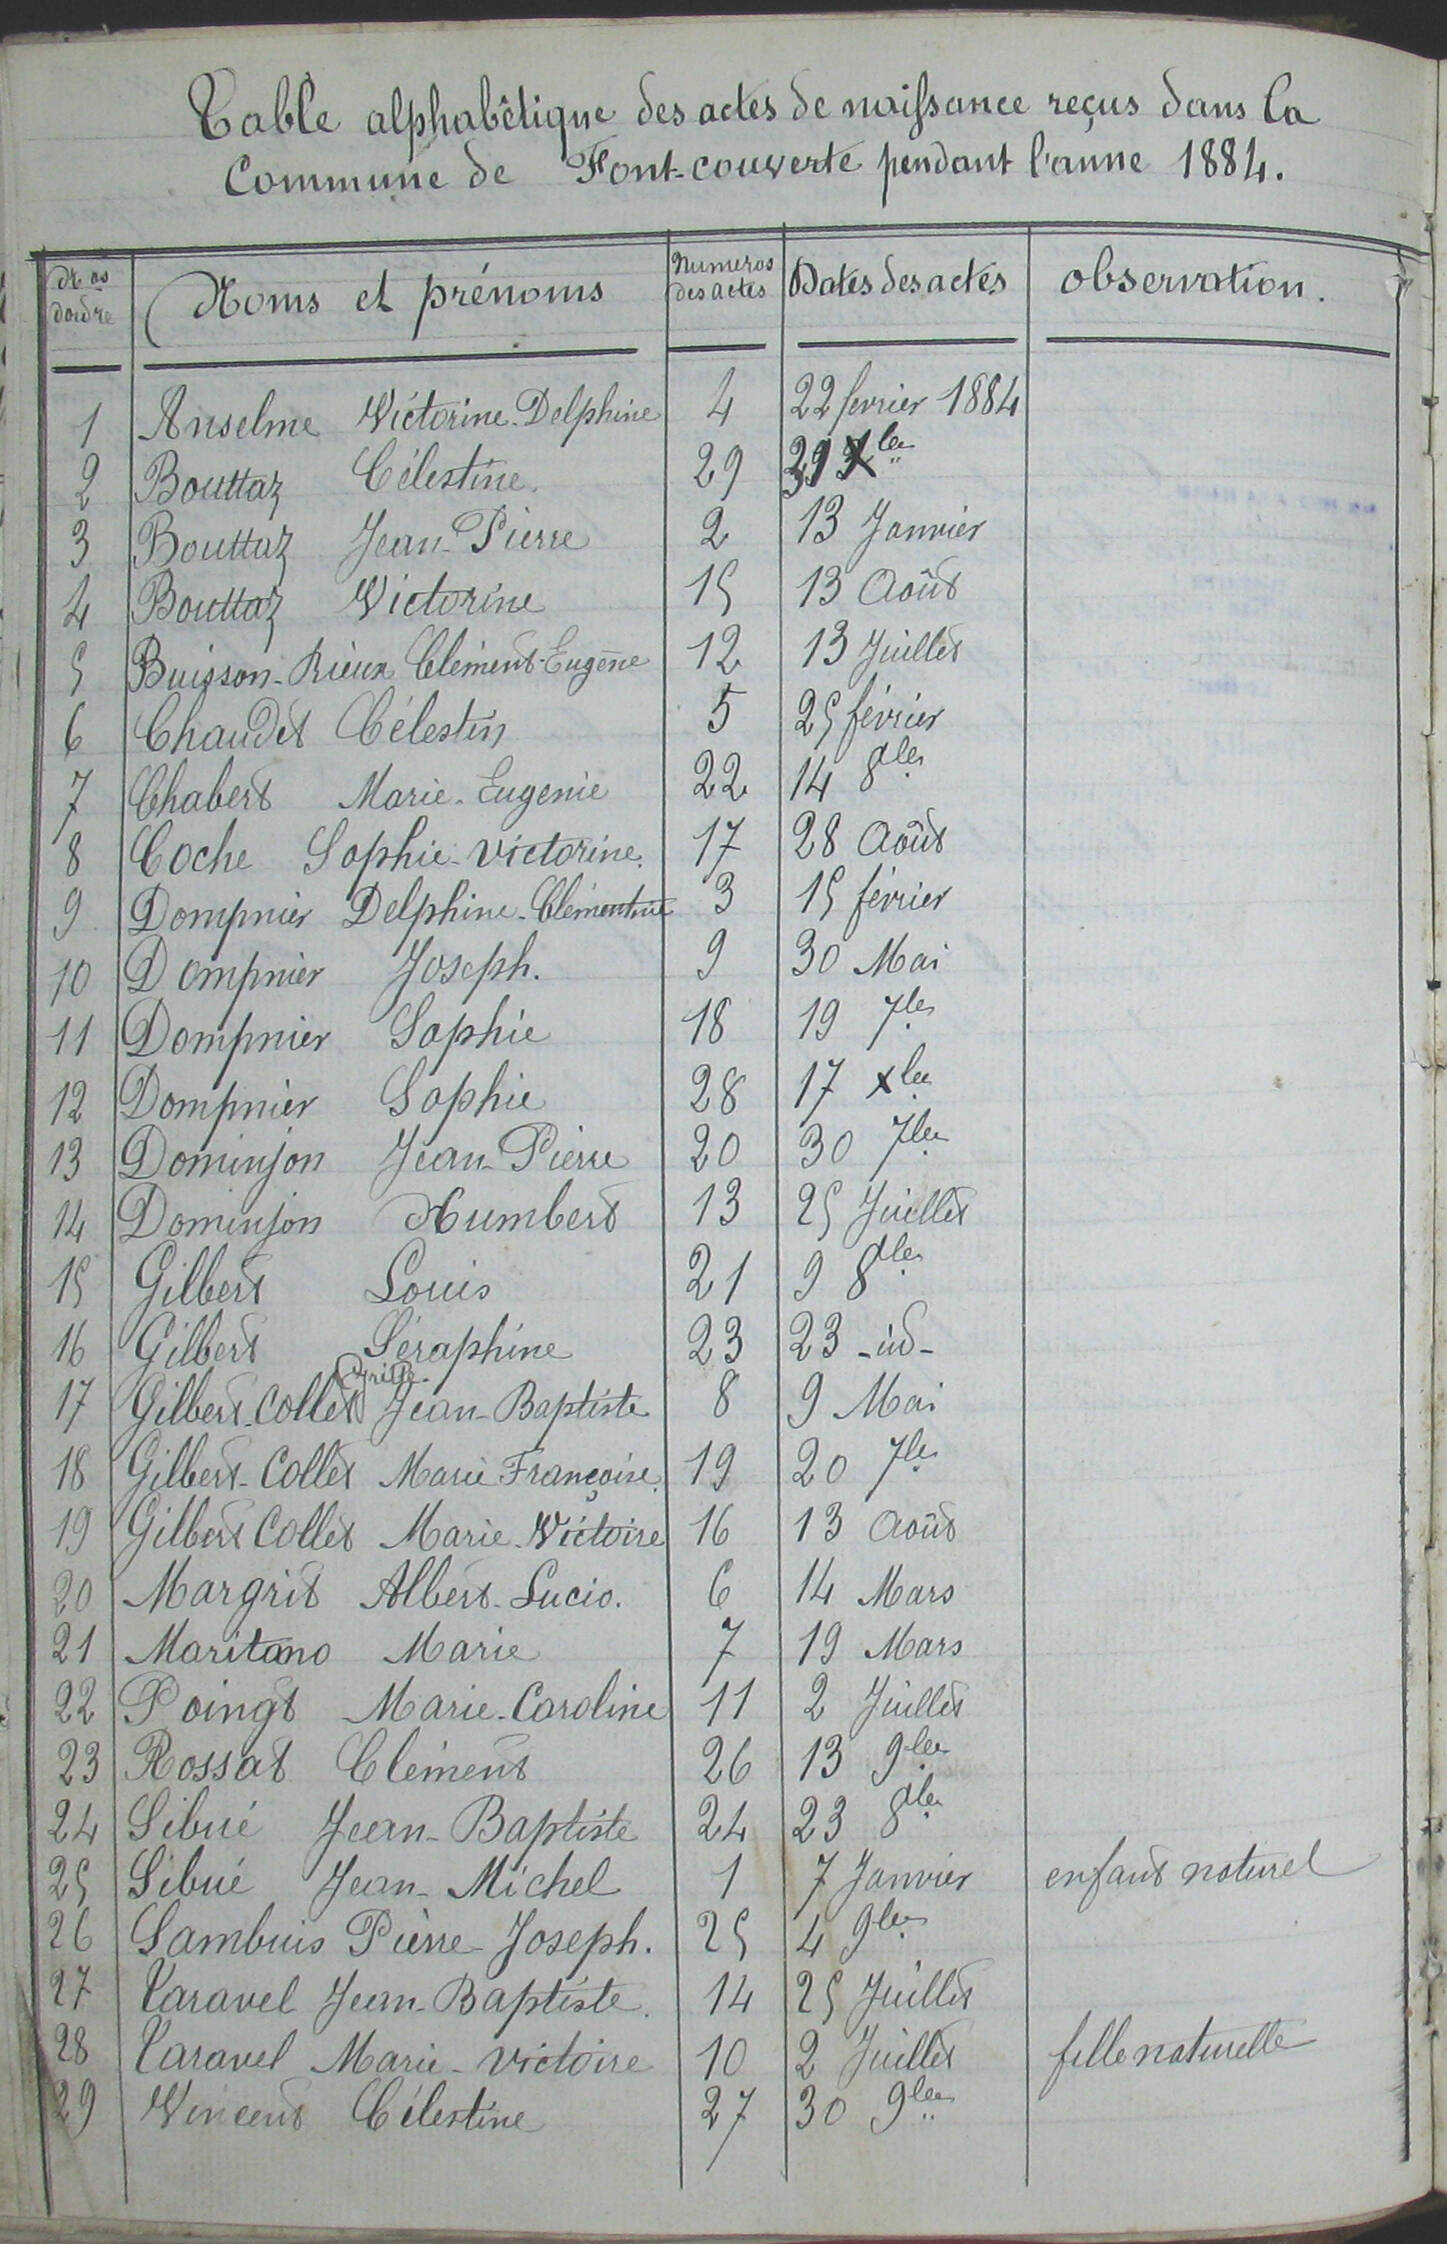 Table alphabêtique des actes de naissance reçus dans la
Commune de Font-couverte pendant l'anne 1884.
N.os d'ordre Noms et prénoms Numeros des actes Dates des actes observation.
1 Anselme Victorine-Delphine 4 22 fevrier 1884
2 Bouttaz Célestine. 29 Xbre
3 Bouttaz Jean-Pierre 2 13 Janvier
4 Bouttaz Victorine 15 13 Août
5 Buisson-Rieux Clément-Eugène 12 13 Juillet
6 Chaudet Célestin 5 25 février
7 Chabert Marie-Eugenie 22 14 8bre
8 Coche Sophie-Victorine. 17 28 Août
9 Dompnier Delphine-Clémentine 3 15 février
10 Dompnier Joseph. 9 30 Mai
11 Dompnier Sophie 18 19 7bre
12 Dompnier Sophie 28 17 xbre
13 Dominjon Jean-Pierre 20 30 7bre
14 Dominjon Humbert 13 25 Juillet
15 Gilbert Louis 21 9 8bre
16 Gilbert Séraphine 23 23 -id-
17 Gilbert-Collet Cyrille Jean-Baptiste 8 9 Mai
18 Gilbert-Collet Marie Françoise. 19 20 7bre
19 Gilbert Collet Marie-Victoire 16 13 Août
20 Margrit Albert-Lucio. 6 14 Mars
21 Maritano Marie 7 19 Mars
22 Poingt Marie-Caroline 11 2 Juillet
23 Rossat Clément 26 13 9bre
24 Sibué Jean-Baptiste 24 23 8bre
25 Sibué Jean-Michel 1 7 Janvier enfant naturel
26 Sambuis Pierre-Joseph. 25 4 9bre
27 Taravel Jean-Baptiste. 14 25 Juillet
28 Taravel Marie-Victoire 10 2 Juillet fille naturelle
29 Vincent Célestine 27 30 9bre